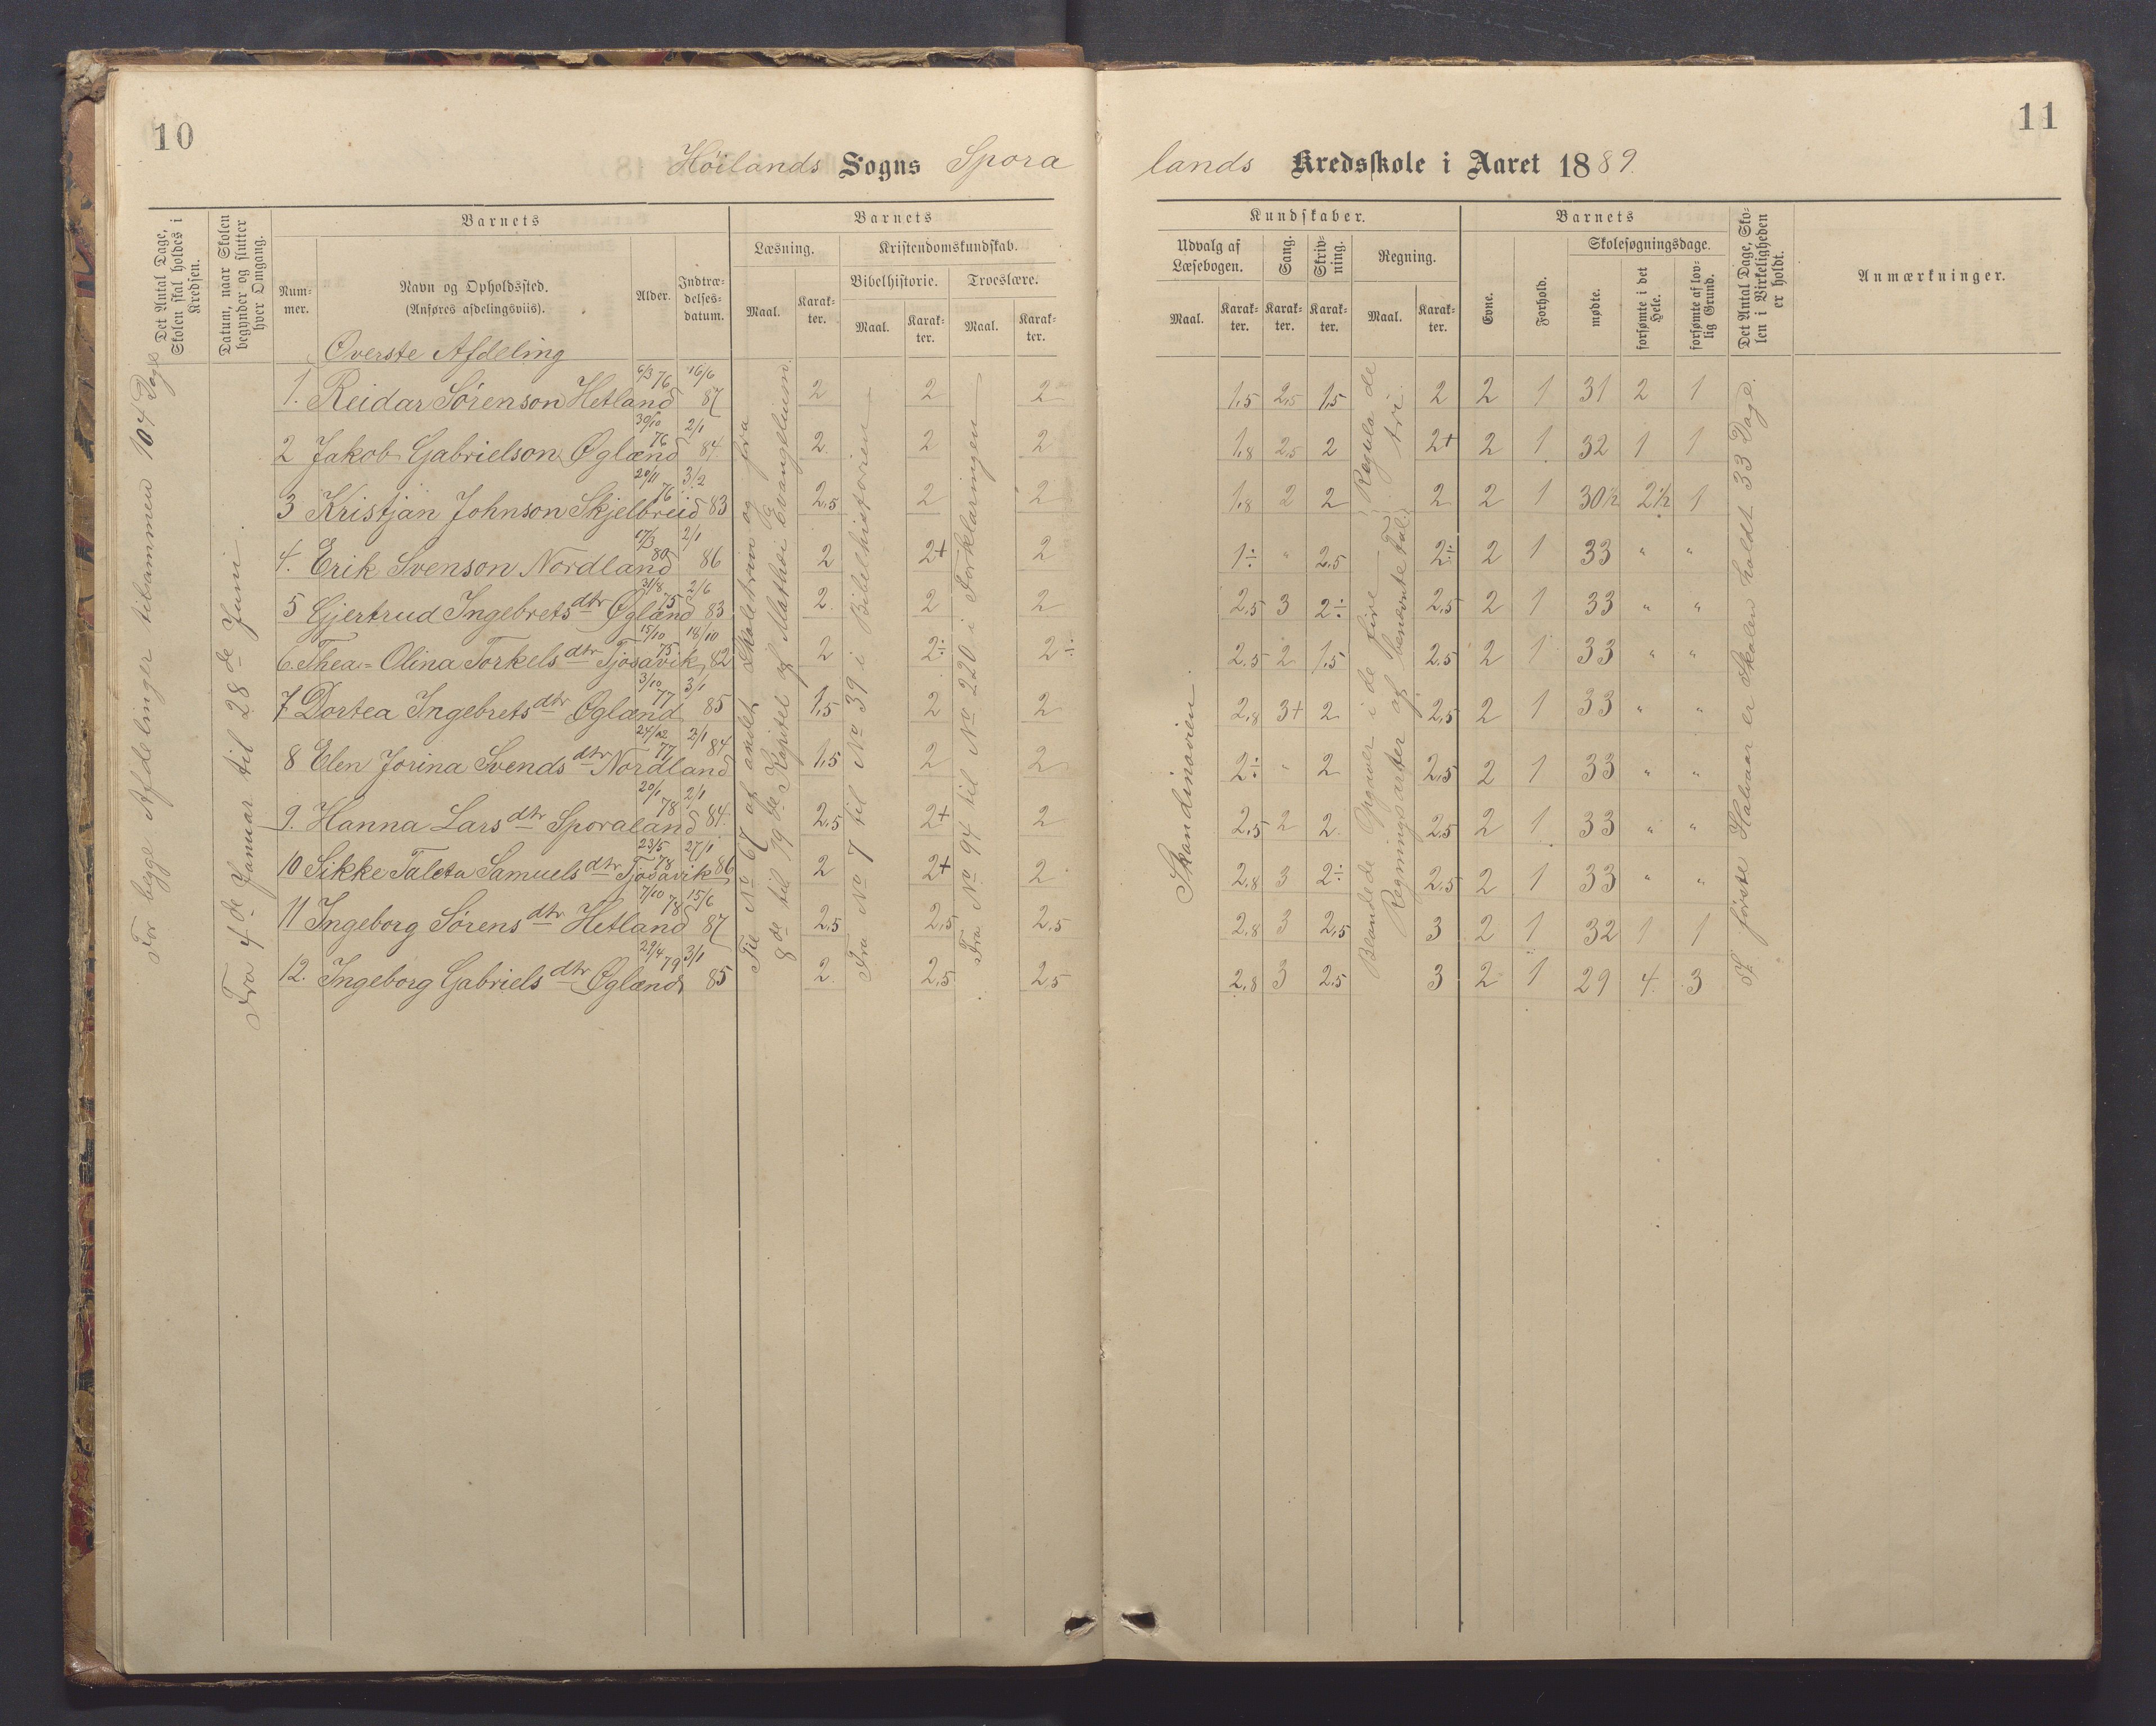 10
11
Høilands Sogns Spora
lands Kredsskole i Aaret 1889.
Det Antal Dage, Skolen skal holdes i Kredsen.
Datum, naar Skolen begynder og slutter hver Omgang.
Barnets
Num-mer.
Navn og Opholdssted.
(Anføres afdelingsviis).
Alder.
Indtræ-delses-datum.
Barnets
Læsning.
Kristendomskundskab.
Bibelhistorie.
Troeslære.
Maal.
Karak-ter.
Maal.
Karak-ter.
Maal.
Karak-ter.
Kundskaber.
Udvalg af Læsebogen.
Sang.
Skriv-ning.
Regning.
Maal.
Karak-ter.
Karak-ter.
Karak-ter.
Maal.
Karak-ter.
Barnets
Evne.
Forhold.
Skolesøgningsdage.
mødte.
forsømte i det Hele.
forsømte af lov-lig Grund.
Det Antal Dage, Sko-len i Virkeligheden er holdt.
Anmærkninger.
For begge Afdelinger tilsammen 104 Dage
Fra 4de Januar til 28de Juni.
Øverste Afdeling
1. Reidar Sørenson Hetland 6/3 76 16/6 87 2 2 2 1,5 2,5 1,5 2 2 1 31 2 1
2 Jakob Gabrielson Øglænd 30/10 76 2/1 84. 2 2 2 1,8 2,5 2 2+ 2 1 32 1 1
3 Kristjan Johnson Skjelbreid 20/11 76 3/2 83 2,5 2 2 1,8 2 2 2 2 1 30½ 2½ 1
4. Erik Svenson Nordland 17/3 80 2/1 86 2 2+ 2 1÷ " 2,5 2÷ 2 1 33 " "
5 Gjertrud Ingebretsdtr Øglænd 31/8 75 2/6 83 2 2 2 2,5 3 2÷ 2,5 2 1 33 " "
6. Thea=Olina Torkelsdtr Tjosavik 15/10 75 18/10 82 2 2÷ 2÷ 2,5 2 1,5 2,5 2 1 33 " "
7 Dortea Ingebretsdtr Øglænd 3/10 77 3/1 85 1,5 2 2 2,8 3+ 2 2,5 2 1 33 " "
8 Elen Jorina Svendsdtr Nordland 24/12 77 2/1 84 1,5 2 2 2÷ " 2 2,5 2 1 33 " "
9. Hanna Larsdtr Sporaland 20/1 78 2/1 84. 2,5 2+ 2 2,5 2 2 2,5 2 1 33 " "
10 Sikke Taleta Samuelsdtr Tjosavik 23/5 78 27/1 86 2 2+ 2 2,8 3 2÷ 2,5 2 1 33 " "
11 Ingeborg Sørensdtr Hetland 7/10 78 15/6 87 2,5 2,5 2,5 2,8 3 2,5 3 2 1 32 1 1
12. Ingeborg Gabrielsdtr Øglænd 29/4 79 3/1 85 2 2,5 2,5 2,8 3 2,5 3 2 1 29 4 3
Til No 67 af andet Skoletrin og fra
8de til 19de Kapitel af Mathæi Evangelium
Fra No 7 til No 39 i Bibelhistorien
Fra No 94 til No 220 i Forklaringen
Skandinavien.
Blandede Opgaver i de fire
Regningsarter af benævnte Tal.
Regula de tri.
I første Halvaar er Skolen holdt 33 Dage.